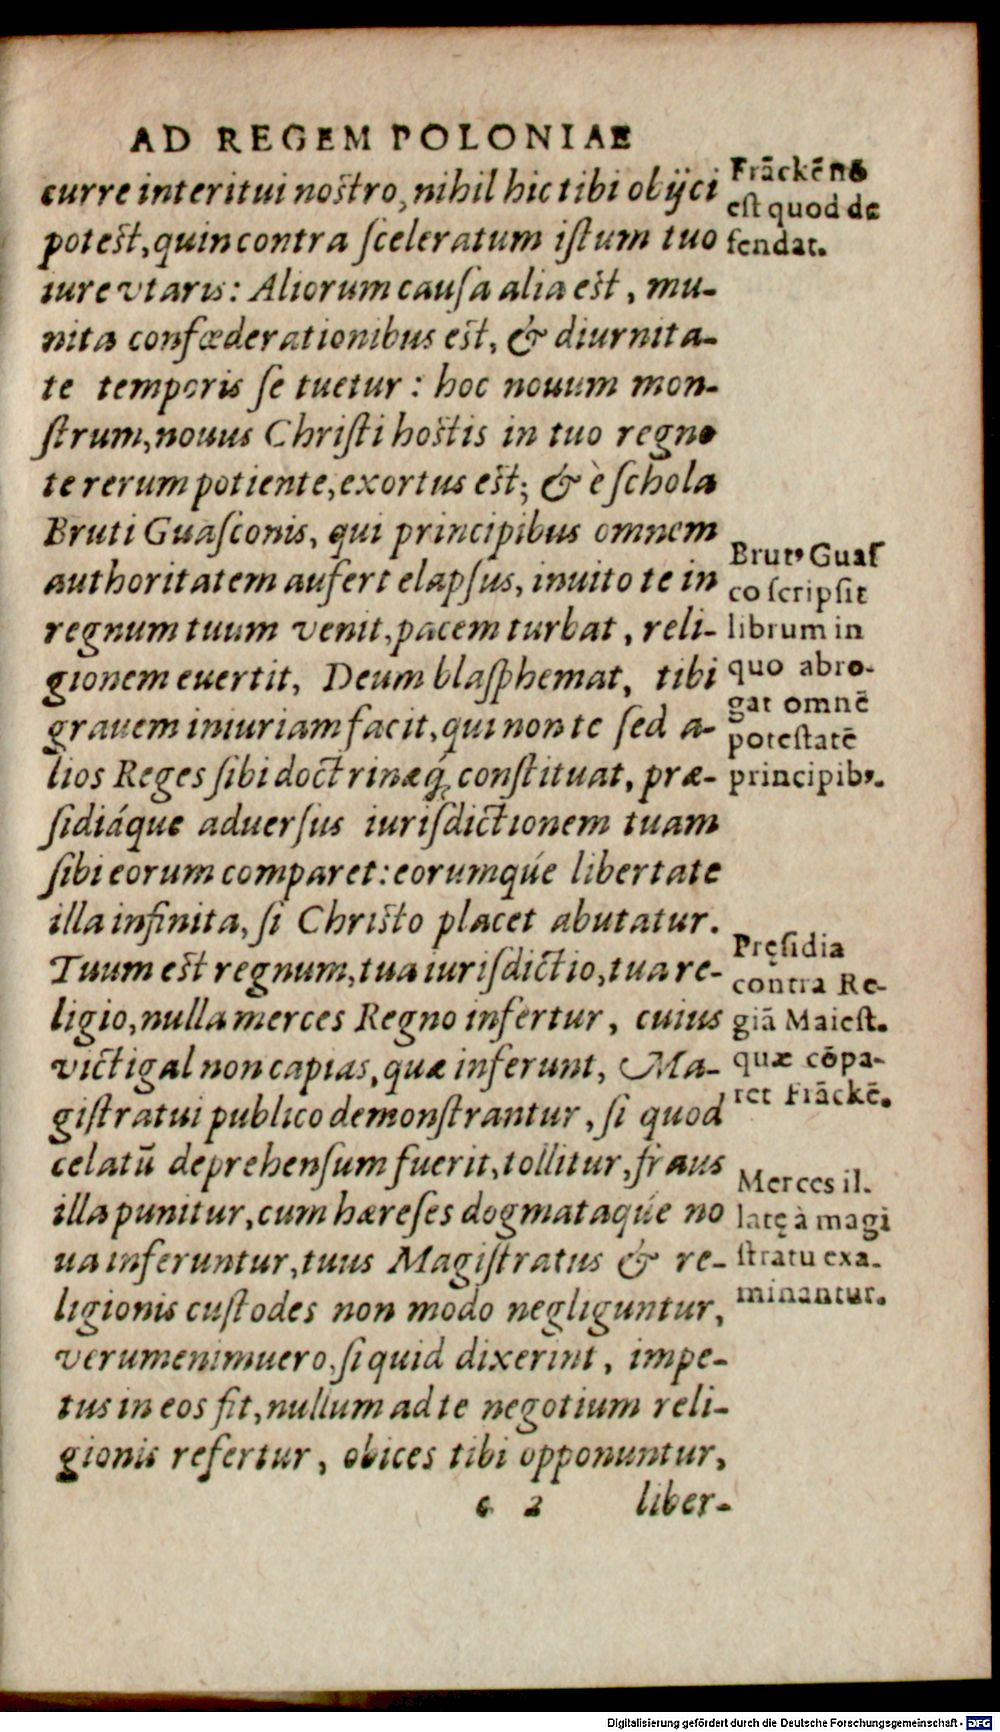 AD REGEM POLONIAE
curre interitui nostro, nihil hic tibi obijci
potest, quin contra sceleratum istum tuo
iure vtaris: Aliorum causa alia est, mu-
nita confœderationibus est, & diurnita-
te temporis se tuetur: hoc nouum mon-
strum, nouus Christi hostis in tuo regno
te rerum potiente, exortus est; & è schola
Bruti Guasconis, qui principibus omnem
authoritatem aufert elapsus, inuito te in
regnum tuum venit, pacem turbat, reli-
gionem euertit, Deum blasphemat, tibi
grauem iniuriam facit, qui non te sed a-
lios Reges sibi doctrinæq́; constituat, præ-
sidiáque aduersus iurisdictionem tuam
sibi eorum comparet: eorumqúe libertate
illa infinita, si Christo placet abutatur.
Tuum est regnum, tua iurisdictio, tua re-
ligio, nulla merces Regno infertur, cuius
victigal non capias, quæ inferunt, Ma-
gistratui publico demonstrantur, si quod
celatū deprehensum fuerit, tollitur, fraus
illa punitur, cum hæreses dogmataqúe no
ua inferuntur, tuus Magistratus & re-
ligionis custodes non modo negliguntur,
verumenimuero, si quid dixerint, impe-
tus in eos fit, nullum ad te negotium reli-
gionis refertur, obices tibi opponuntur,
c 2 liber-
Frāckē nō
est quod de
fendat.
Brutꝰ Guas
co scripsit
librum in
quo abro-
gat omnē
potestatē
principibꝰ.
Pręsidia
contra Re-
giā Maiest.
quæ cōpa-
ret Frāckē.
Merces il-
latę à magi
stratu exa-
minantur.
Digitalisierung gefördert durch die Deutsche Forschungsgemeinschaft - DFG